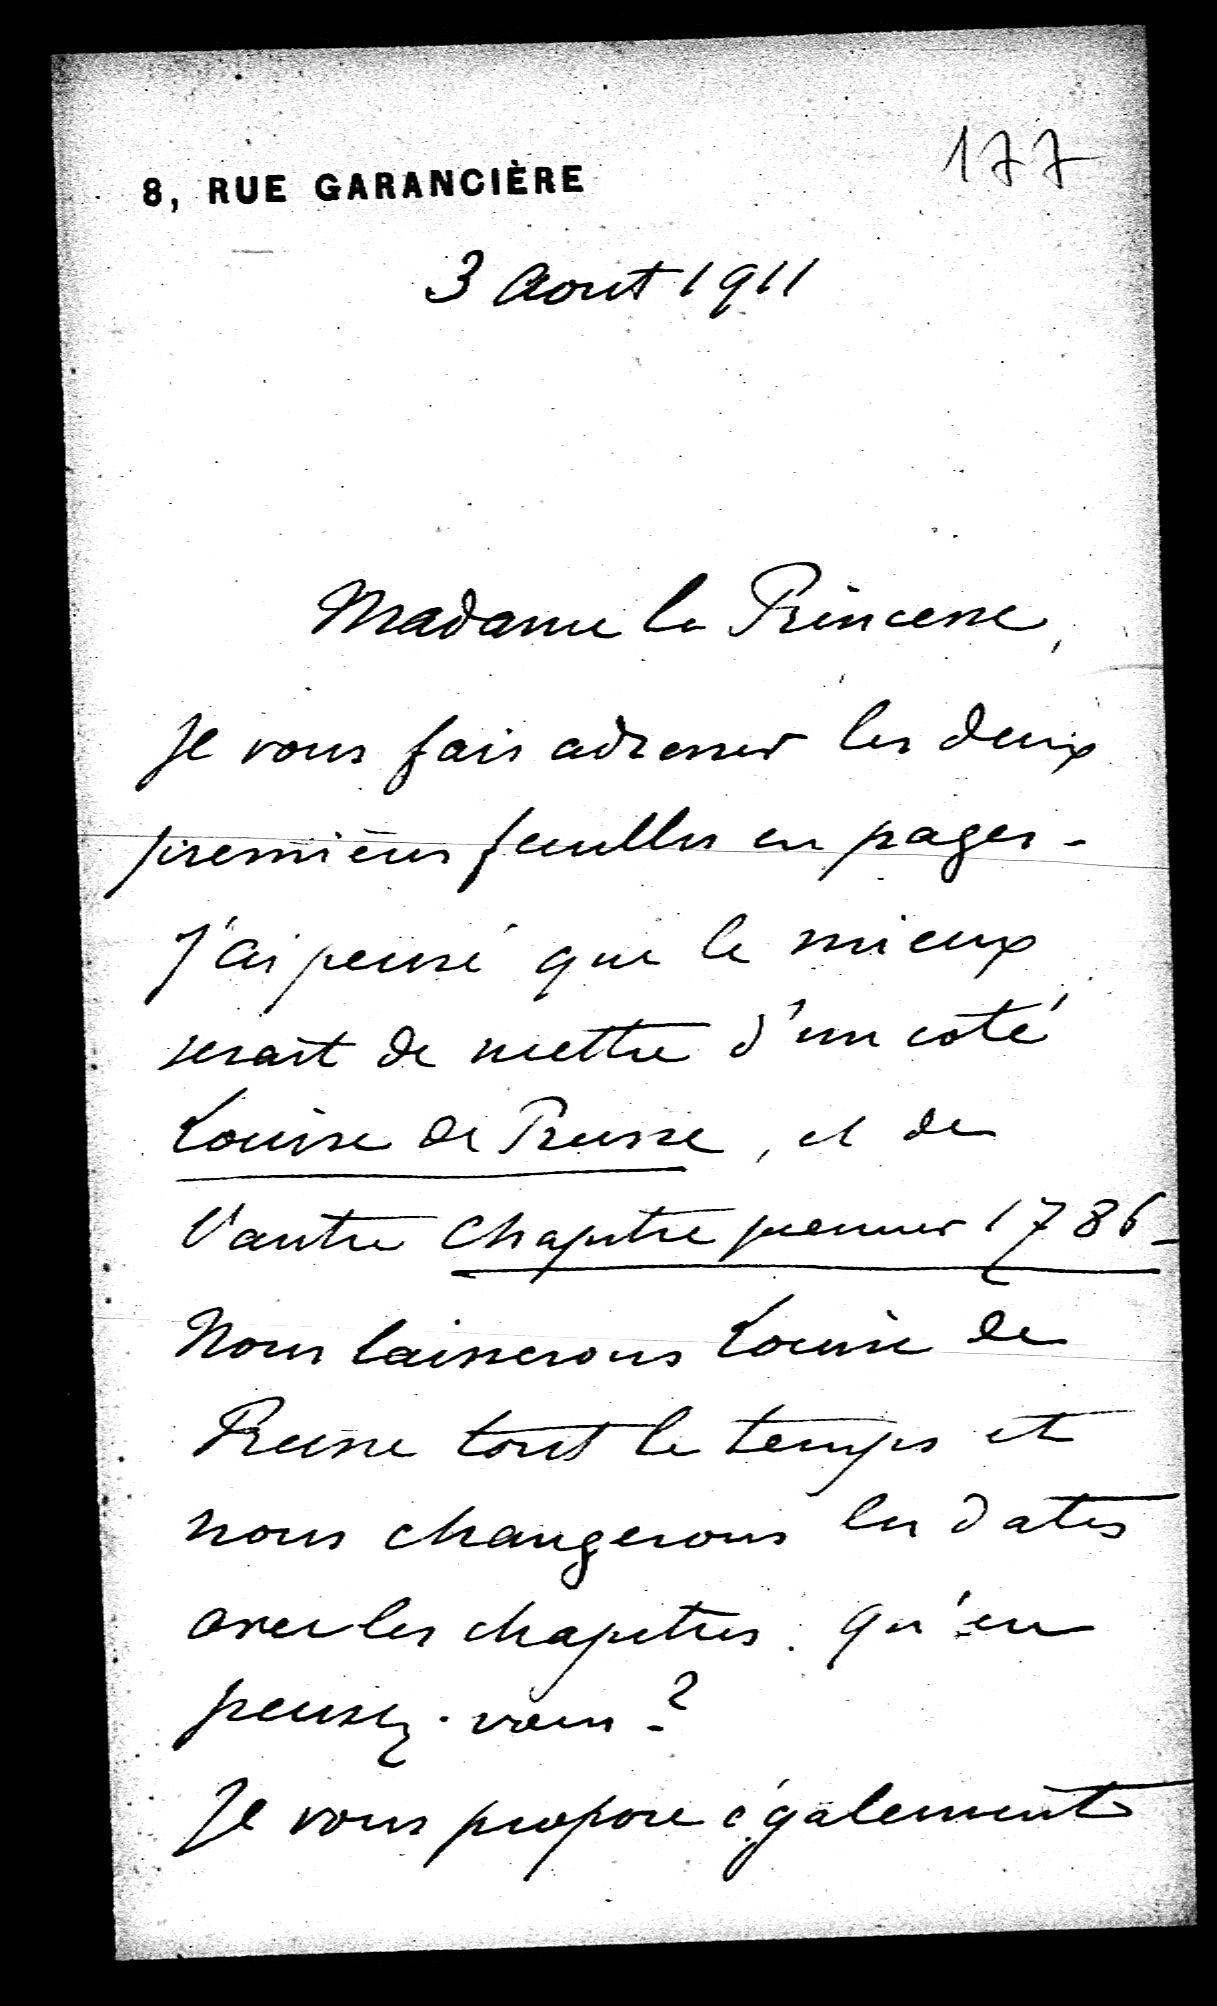 177
8, RUE GARANCIÈRE
3 Aout 1911
Madame la Princesse,
Je vous fais adresser les deux
premières feuilles en pages -
J'ai pensé que le mieux
serait de mettre d'un coté
Louise de Prusse, et de
l'autre Chapitre premier 1786 -
Nous laisserons Louise de
Prusse tout le temps et
nous changerons les dates
avec les chapitres. qu'en
pensez-vous ?
Je vous propose également